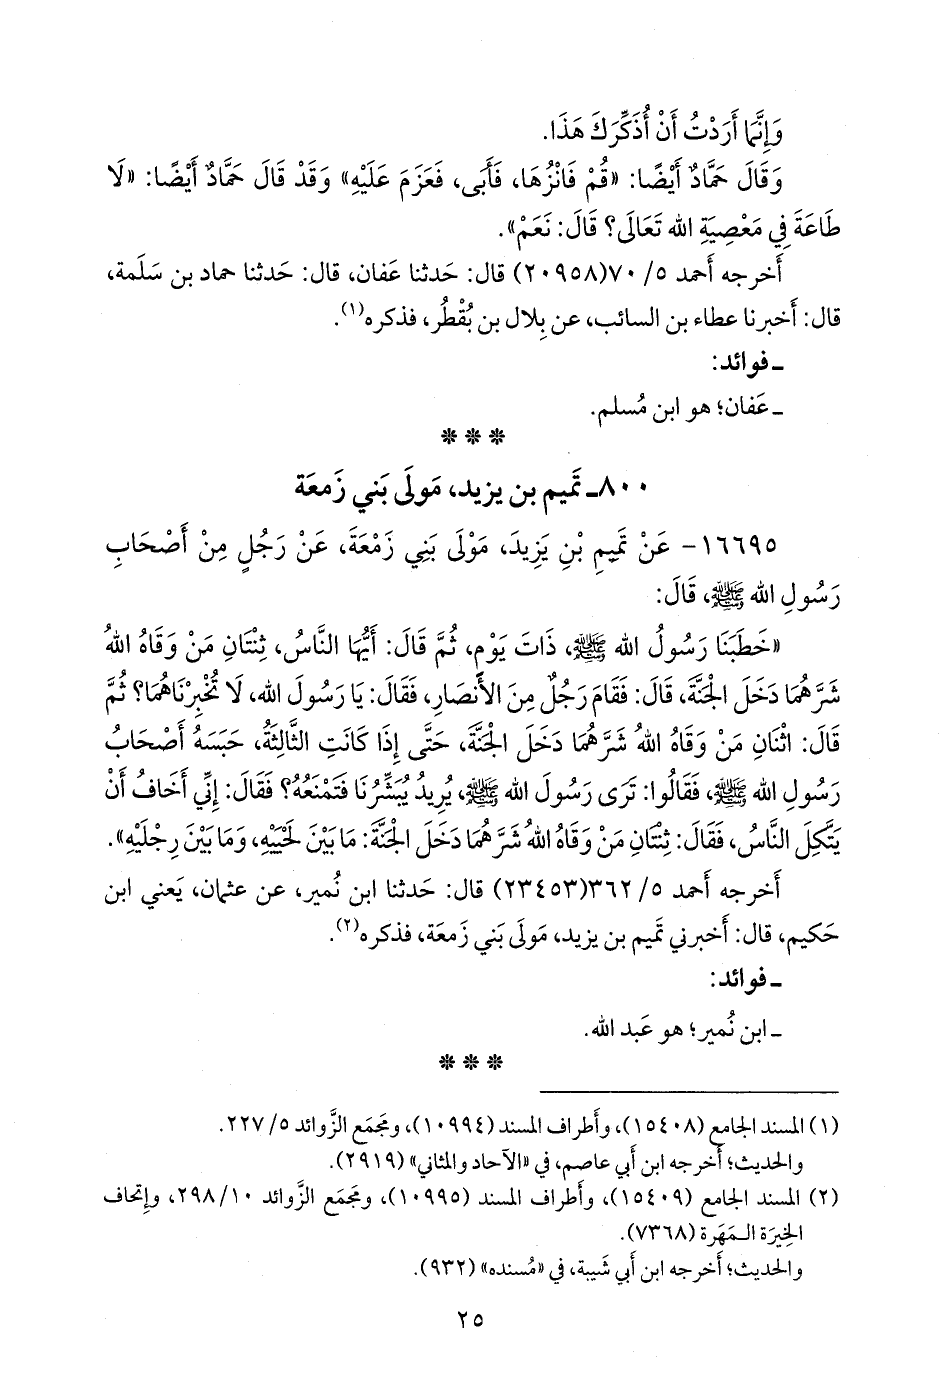 وَإِنَّمَا أَرَدْتُ أَنْ أُذَكِّرَكَ هَذَا.
وَقَالَ حَمَّادٌ أَيْضًا: «قُمْ فَانْزُهَا، فَأَبَى، فَعَزَمَ عَلَيْهِ» وَقَدْ قَالَ حَمَّادٌ أَيْضًا: «لَا
طَاعَةَ فِي مَعْصِيَةِ الله تَعَالَى؟ قَالَ: نَعَمْ».
أَخرجه أَحمد ٥/ ٧٠(٢٠٩٥٨) قال: حَدثنا عَفان، قال: حَدثنا حماد بن سَلَمة،
قال: أَخبرنا عطاء بن السائب، عن بِلال بن بُقْطُر، فذكره(١).
ـ فوائد:
ـ عَفان؛ هو ابن مُسلم.
* * *
٨٠٠ـ تَميم بن يزيد، مَولَى بَني زَمعَة
١٦٦٩٥- عَنْ تَمِيمِ بْنِ يَزِيدَ، مَوْلَى بَنِي زَمْعَةَ، عَنْ رَجُلٍ مِنْ أَصْحَابِ
رَسُولِ الله ﷺ، قَالَ:
«خَطَبَنَا رَسُولُ الله ﷺ، ذَاتَ يَوْمٍ، ثُمَّ قَالَ: أَيُّهَا النَّاسُ، ثِنْتَانِ مَنْ وَقَاهُ اللهُ
شَرَّهُمَا دَخَلَ الْجَنَّةَ، قَالَ: فَقَامَ رَجُلٌ مِنَ الأَنْصَارِ، فَقَالَ: يَا رَسُولَ الله، لَا تُخْبِرْنَاهُمَا؟ ثُمَّ
قَالَ: اثْنَانِ مَنْ وَقَاهُ اللهُ شَرَّهُمَا دَخَلَ الْجَنَّةَ، حَتَّى إِذَا كَانَتِ الثَّالِثَةُ، حَبَسَهُ أَصْحَابُ
رَسُولِ الله ﷺ، فَقَالُوا: تَرَى رَسُولَ الله ﷺ، يُرِيدُ يُبَشِّرُنَا فَتَمْنَعُهُ؟ فَقَالَ: إِنِّي أَخَافُ أَنْ
يَتَّكِلَ النَّاسُ، فَقَالَ: ثِنْتَانِ مَنْ وَقَاهُ اللهُ شَرَّهُمَا دَخَلَ الْجَنَّةَ: مَا بَيْنَ لَحْيَيْهِ، وَمَا بَيْنَ رِجْلَيْهِ».
أَخرجه أَحمد ٥/ ٣٦٢(٢٣٤٥٣) قال: حَدثنا ابن نُمير، عن عثمان، يَعني ابن
حَكيم، قال: أَخبرني تَميم بن يزيد، مَولَى بَني زَمعَة، فذكره(٢).
ـ فوائد:
ـ ابن نُمير؛ هو عَبد الله.
* * *
(١) المسند الجامع (١٥٤٠٨)، وأَطراف المسند (١٠٩٩٤)، ومَجمَع الزَّوائد ٥/ ٢٢٧.
والحديث؛ أَخرجه ابن أَبي عاصم، في «الآحاد والمثاني» (٢٩١٩).
(٢) المسند الجامع (١٥٤٠٩)، وأَطراف المسند (١٠٩٩٥)، ومَجمَع الزَّوائد ١٠/ ٢٩٨، وإِتحاف
الخِيرَة الـمَهَرة (٧٣٦٨).
والحديث؛ أَخرجه ابن أَبي شَيبة، في «مُسنده» (٩٣٢).
٢٥